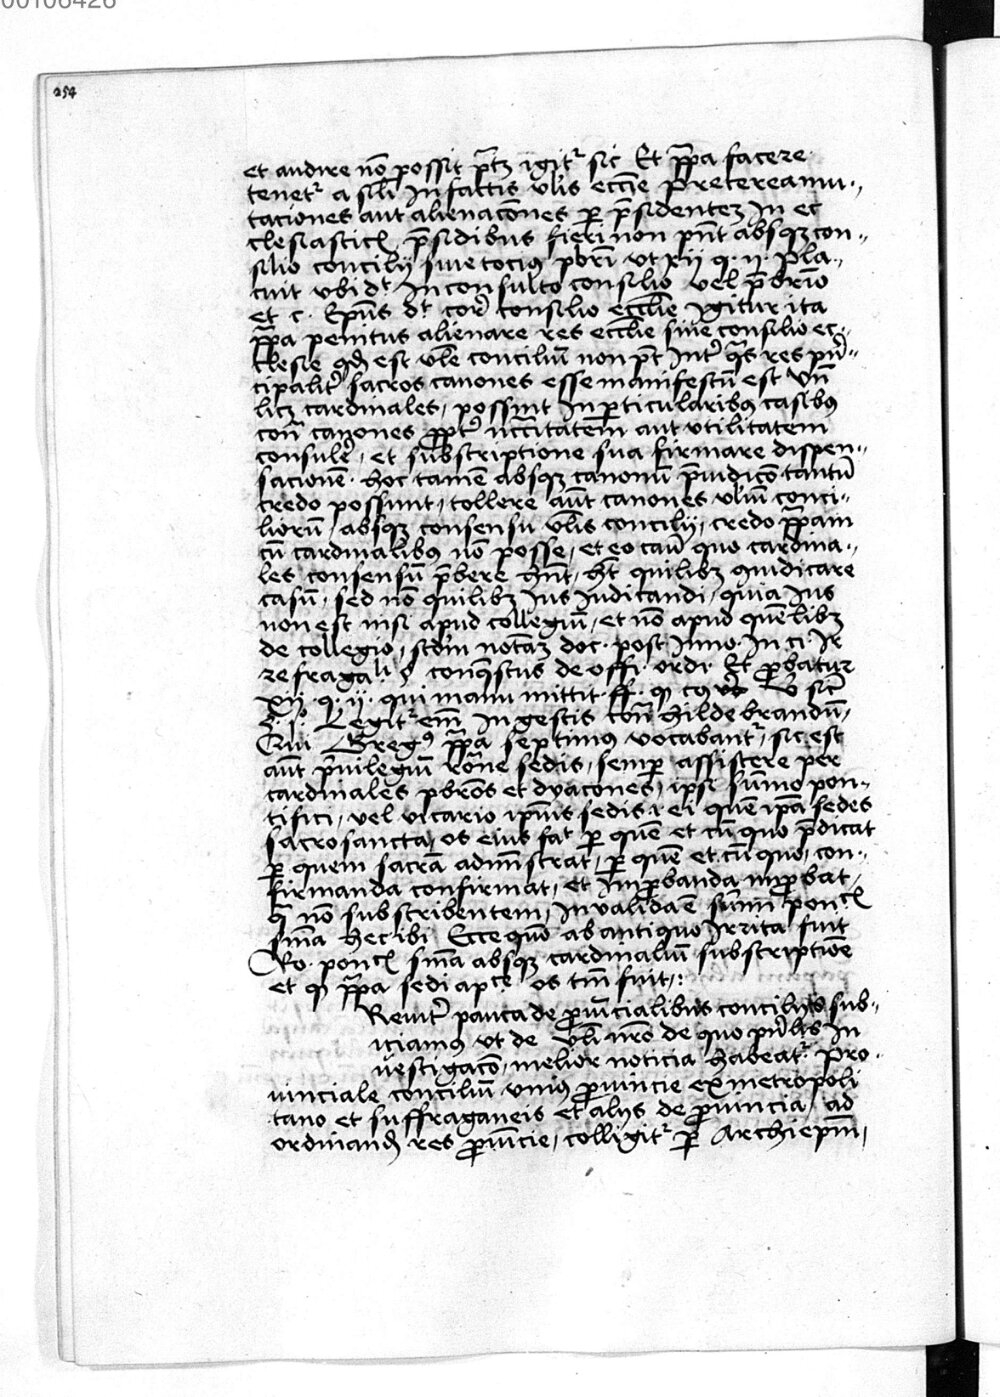 00106426
254
et audire nō possit p̄tꝫ igit᷑ sic Et pp̄a facere
tenet᷑ a sili In factis vlis eccīe Preterea mu-
taciones aut alienacōnes ꝑ p̄sidentez In ec
clesiasticꝭ p̄sidibus fieri non pn̄t absqꝫ con-
silio concilij siue tocius pbrī vt xij q. ij. Pla-
cuit vbi dt In consulto consilio vel p̄sbrio
et c. Ep̄us dt cor̄ consilio eccīe Igitur ita
pp̄a penitus alienare res eccīe siue consilio ec-
clesie qd̄ est vle conciliū non pt Int̄ qas res pn̄-
cipalit̄ sacros canones esse manifestū est Vn̄
licꝫ cardinales, possint In ꝑticularibus casibus
con̄ canones ꝓpt̄ nccītatem aut vtilitatem
consuler̄, et subscriptione sua firmare dispen-
sacionē. hoc tamē absqꝫ canonū p̄iudicō tantū
credo possunt, tollere aūt canones vliū conci-
liorū, absqꝫ consensu vlis concilij, credo pp̄am
cū cardinalibus nō posse, et eo casu quo cardina-
les consensū p̄bere hn̄t, ht quilibꝫ iudicare
casū, sed nō quilibꝫ Ius Iudicandi, quia Ius
non est nisi apud collegiū, et nō apud quēlibꝫ
de collegio, scdm notam doc. post Inno. In c. Ir
refragali § conquestus de offi. ordi. Et ꝓbatur
xij. q. ij. qui manumittit ff.
Legit᷑ em̄ In gestis con̄ Hildebrandū,
Qui Greg9 pp̄a septimus vocabant᷑, sic est
aūt p̄uilegiū Rōne sedis, semꝑ assistere per
cardinales pbros et dyacones, ipsi sūmo pon-
tifici, vel vicario ip̄ius sedis, ei quē ip̄a sedes
sacrosancta, os eius fat ꝑ quē et cū quo p̄dicat
ꝑ quem sacra administrat, ꝑ quē et cū quo, con-
firmanda confirmat, et Improbanda improbat,
qͣ nō subscribentem, Inualida ē sūmi poncꝭ
sn̄ia hec ibi Ecce quō ab antiquo Irrita fuit
Ro. poncꝭ sn̄ia absqꝫ cardinaliū subscriptiōe
et qꝫ pp̄a sedi apce os tm̄ fuit,:
Reuit̄ pauca de ꝓuincialibus concilijs sub-
iciamus vt de vli nr̄o de quo pn̄lis In
uestigacō, melior noticia habeat᷑. Pro-
uinciale conciliū vnius ꝓuincie ex metropoli
tano et suffraganeis et alijs de ꝓuincia, ad
ordinand̄ res ꝓuincie, colligit᷑ ꝑ Archiepm̄,